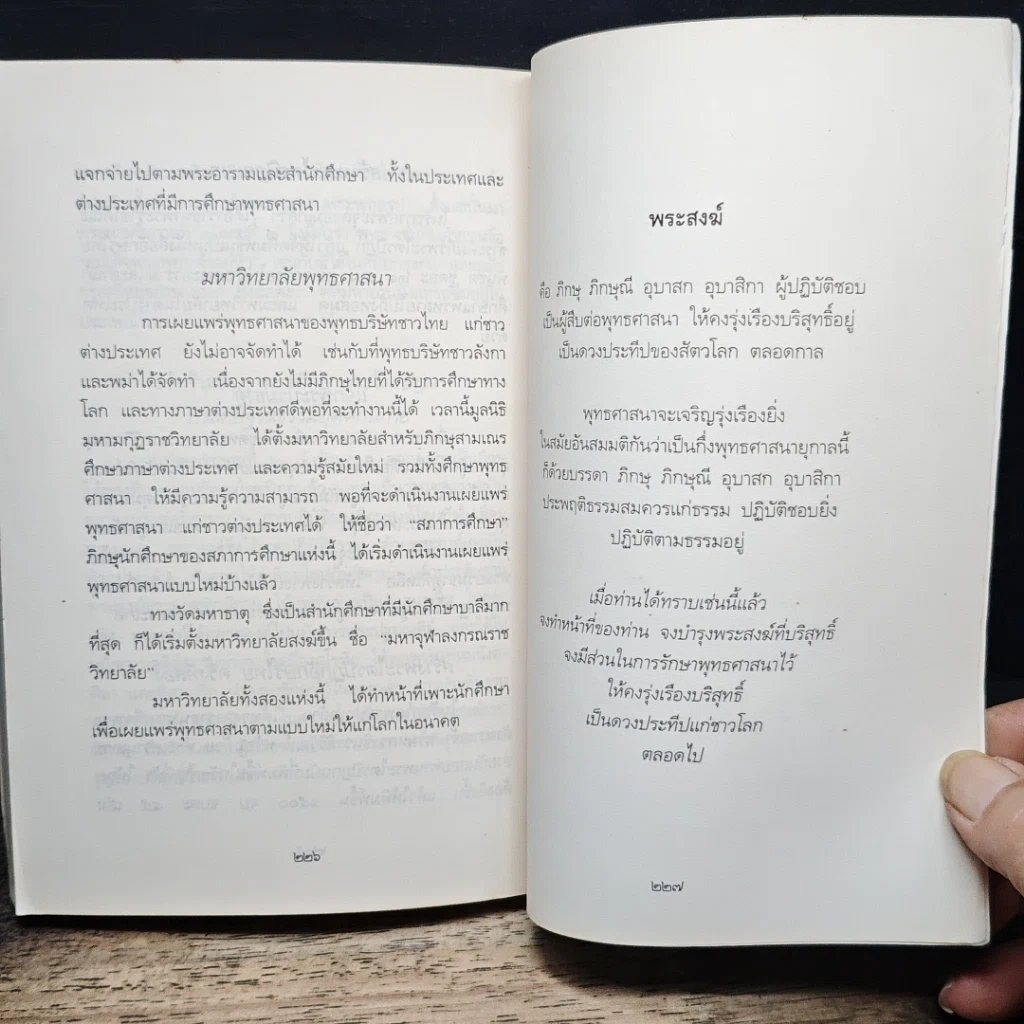 แจกจ่ายไปตามพระอารามและสำนักศึกษา ทั้งในประเทศและ
ต่างประเทศที่มีการศึกษาพุทธศาสนา
มหาวิทยาลัยพุทธศาสนา
การเผยแพร่พุทธศาสนาของพุทธบริษัทชาวไทย แก่ชาว
ต่างประเทศ ยังไม่อาจจัดทำได้ เช่นกับที่พุทธบริษัทชาวลังกา
และพม่าได้จัดทำ เนื่องจากยังไม่มีภิกษุไทยที่ได้รับการศึกษาทาง
โลก และทางภาษาต่างประเทศดีพอที่จะทำงานนี้ได้ เวลานี้มูลนิธิ
มหามกุฏราชวิทยาลัย ได้ตั้งมหาวิทยาลัยสำหรับภิกษุสามเณร
ศึกษาภาษาต่างประเทศ และความรู้สมัยใหม่ รวมทั้งศึกษาพุทธ
ศาสนา ให้มีความรู้ความสามารถ พอที่จะดำเนินงานเผยแพร่
พุทธศาสนา แก่ชาวต่างประเทศได้ ให้ชื่อว่า “สภาการศึกษา”
ภิกษุนักศึกษาของสภาการศึกษาแห่งนี้ ได้เริ่มดำเนินงานเผยแพร่
พุทธศาสนาแบบใหม่บ้างแล้ว
ทางวัดมหาธาตุ ซึ่งเป็นสำนักศึกษาที่มีนักศึกษาบาลีมาก
ที่สุด ก็ได้เริ่มตั้งมหาวิทยาลัยสงฆ์ขึ้น ชื่อ “มหาจุฬาลงกรณราช
วิทยาลัย”
มหาวิทยาลัยทั้งสองแห่งนี้ ได้ทำหน้าที่เพาะนักศึกษา
เพื่อเผยแพร่พุทธศาสนาตามแบบใหม่ให้แก่โลกในอนาคต
๒๒๖
พระสงฆ์
คือ ภิกษุ ภิกษุณี อุบาสก อุบาสิกา ผู้ปฏิบัติชอบ
เป็นผู้สืบต่อพุทธศาสนา ให้คงรุ่งเรืองบริสุทธิ์อยู่
เป็นดวงประทีปของสัตวโลก ตลอดกาล
พุทธศาสนาจะเจริญรุ่งเรืองยิ่ง
ในสมัยอันสมมติกันว่าเป็นกึ่งพุทธศาสนายุกาลนี้
ก็ด้วยบรรดา ภิกษุ ภิกษุณี อุบาสก อุบาสิกา
ประพฤติธรรมสมควรแก่ธรรม ปฏิบัติชอบยิ่ง
ปฏิบัติตามธรรมอยู่
เมื่อท่านได้ทราบเช่นนี้แล้ว
จงทำหน้าที่ของท่าน จงบำรุงพระสงฆ์ที่บริสุทธิ์
จงมีส่วนในการรักษาพุทธศาสนาไว้
ให้คงรุ่งเรืองบริสุทธิ์
เป็นดวงประทีปแก่ชาวโลก
ตลอดไป
๒๒๗